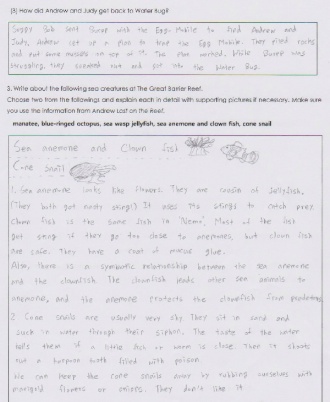 (8) How did Andrew and Judy get back to Water Bug?
Soggy Bob sent Burne with the Egg-Mobile to find Andrew and
Judy. Andrew set up a plan to trap the Egg Mobile. They piled rocks
and put some on top of it. The plan worked. While Burne was
struggling, they sneaked out and got into the Water Bug.
5. Write about the following sea creatures at The Great Barrier Reef.
Choose two from the followings and explain each in detail with supporting pictures if necessary. Make sure
you use the information from Andrew Lost on the Reef.
manatee, blue-ringed octopus, sea wasp jellyfish, sea anemone and clown fish, cone snail
Sea anemone and Clown fish
Cone snail
1. Sea anemone looks like flowers. They are cousin of Jellyfish.
(They both got nasty stings!) It uses its stings to catch prey.
Clown fish is the same fish in 'Nemo'. Most of the fish
got sting if they go too close to anemones, but clown fish
are safe. They have a coat of mucus glue.
Also, there is a symbiotic relationship between the sea anemone
and the clownfish. The clownfish leads other sea animals to
anemone, and the anemone protects the clownfish from predators.
2 Cone snails are usually very shy. They sit in sand and
suck in water through their siphon. The taste of the water
tells them if a little fish or worm is close. Then it shoots
out a harpoon tooth filled with poison.
We can keep the cone snails away by rubbing ourselves with
marigold flowers or onions. They don't like it.